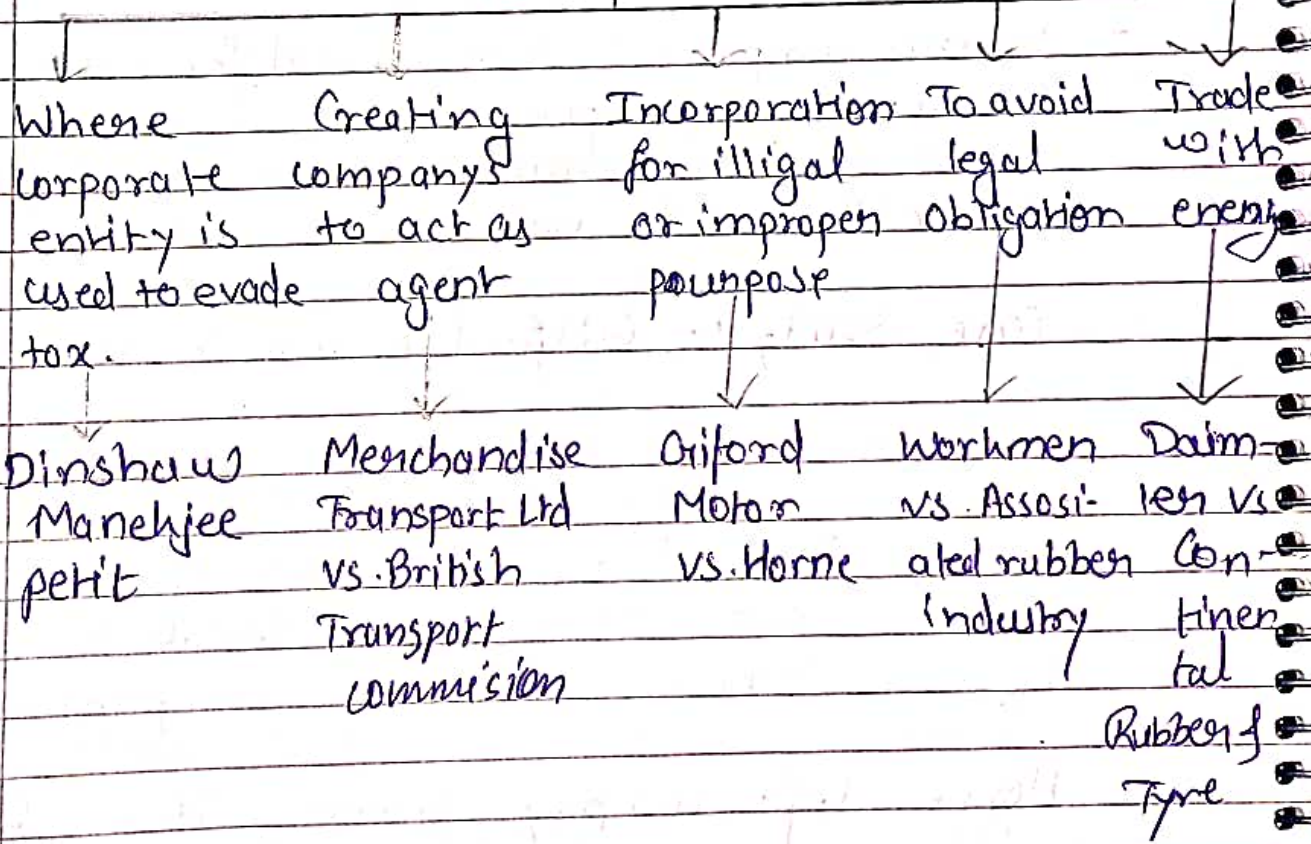 Where
corporate
entity is
used to evade
tax.
Creating
company's
to act as
agent
Incorporation
for illigal
or improper
pourpose
To avoid
legal
obligation
Trade
with
enemy
Dinshaw
Manekjee
petit
Merchandise
Transport Ltd
vs. British
Transport
commision
Giford
Motor
vs. Horne
Workmen
vs. Associ-
ated rubber
industry
Daim-
ler vs
Con-
tinen
tal
Rubber &
Tyre